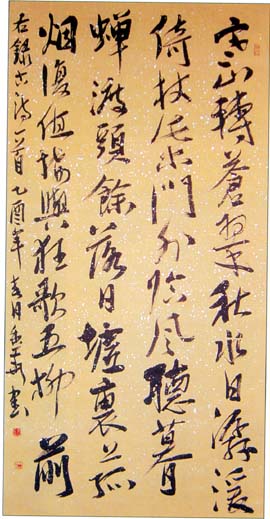 寒山轉蒼翠秋水日潺湲
倚杖柴門外臨風聽暮
蟬渡頭餘落日墟裏上孤
烟復值接輿狂歌五柳前
右録古詩一首乙酉年春日書